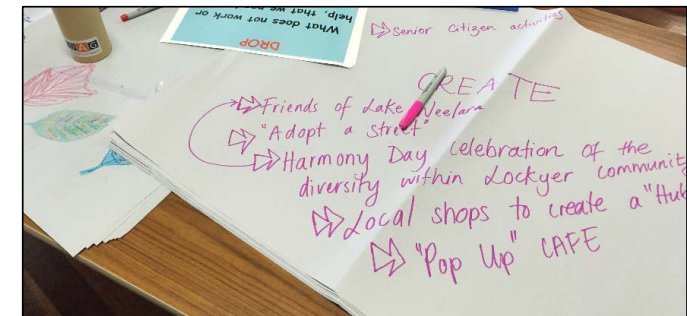 DROP
What does not work or
Senior Citizen activities
CREATE
Friends of Lake Weelara
"Adopt a street"
Harmony Day celebration of the
diversity within Lockyer community
Local shops to create a "Hub
"Pop Up" CAFE